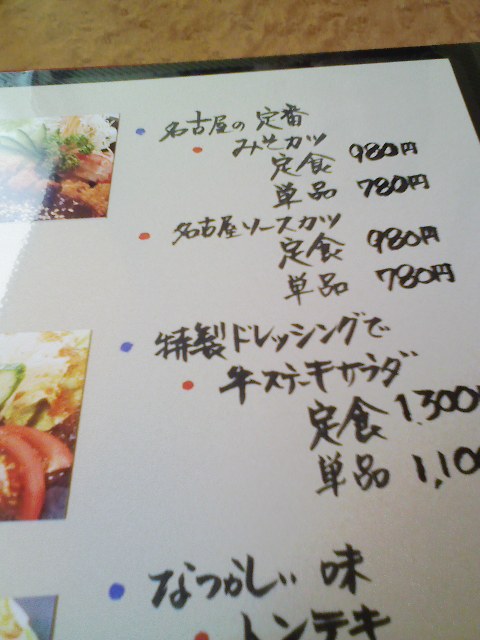 名古屋の定番
みそカツ
定食 980円
単品 780円
名古屋ソースカツ
定食 980円
単品 780円
特製ドレッシングで
牛ステーキサラダ
定食 1,300
単品 1,100
なつかしい味
トンテキ